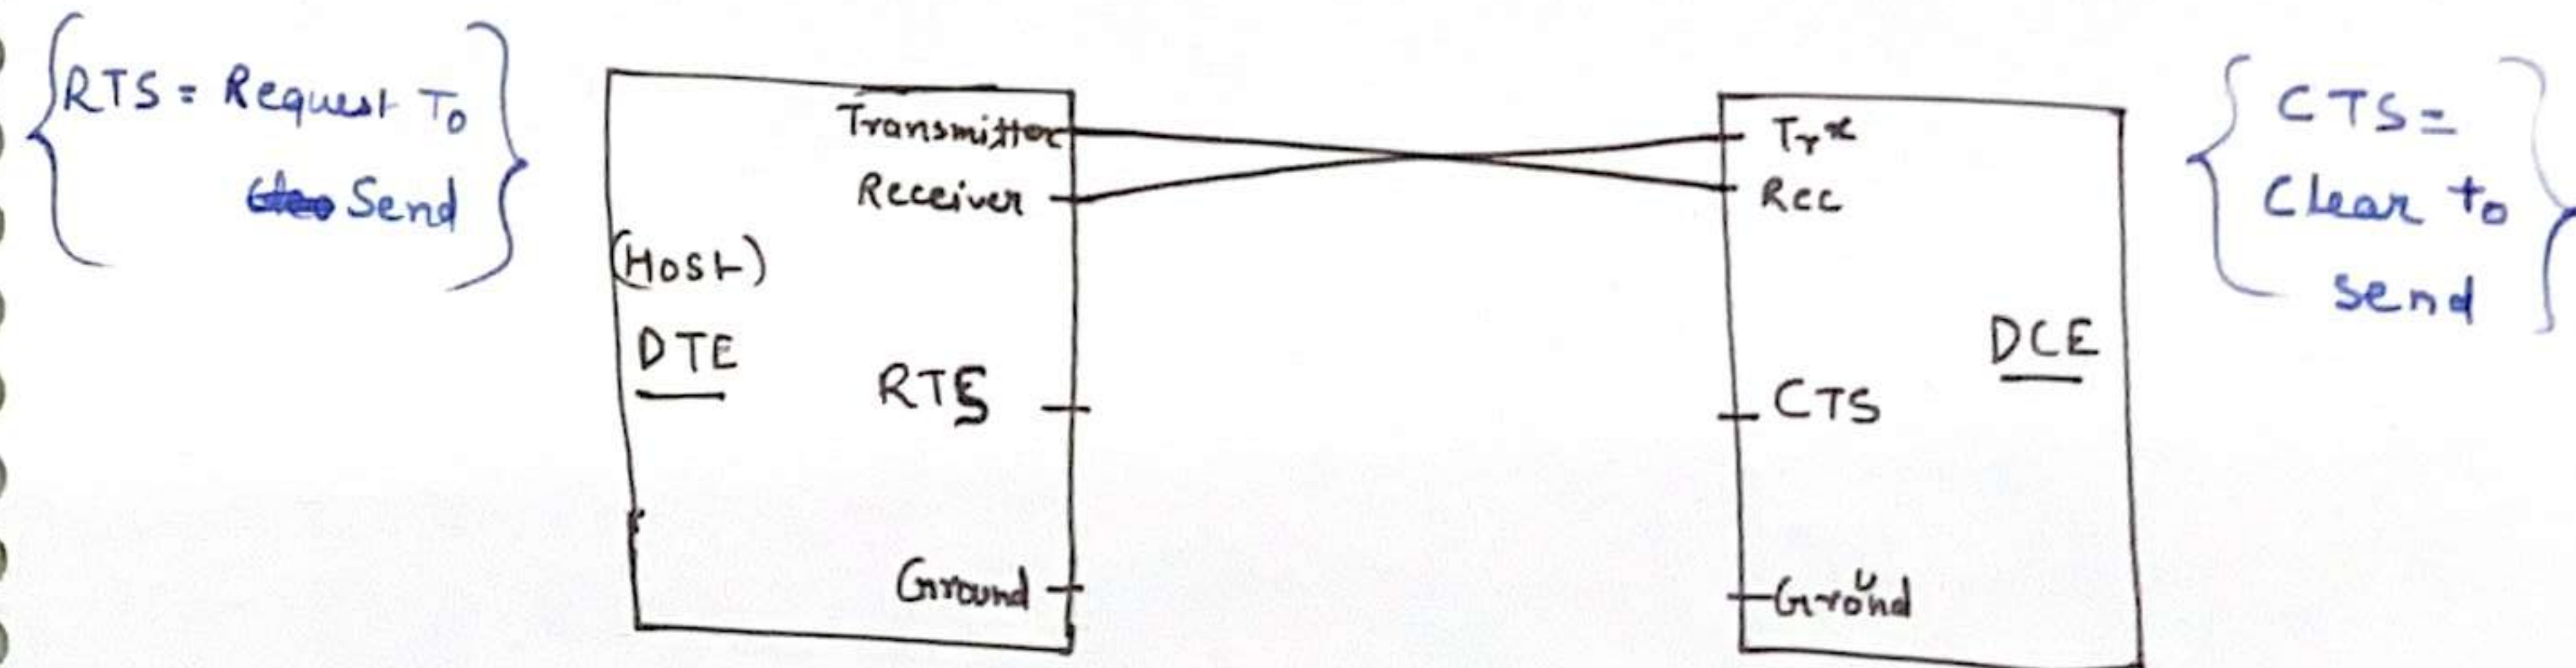 RTS = Request To
Send
Transmitter
Receiver
(Host)
DTE
RTS
Ground
Trx
Rec
DCE
CTS
Ground
CTS =
Clear to
send